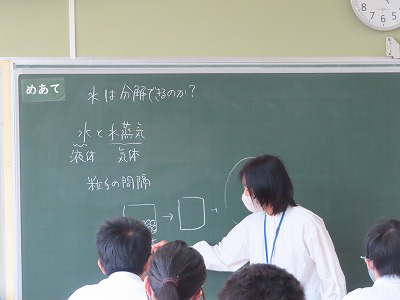 めあて
水は分解できるのか?
水と水蒸気
液体 気体
粒子の間隔